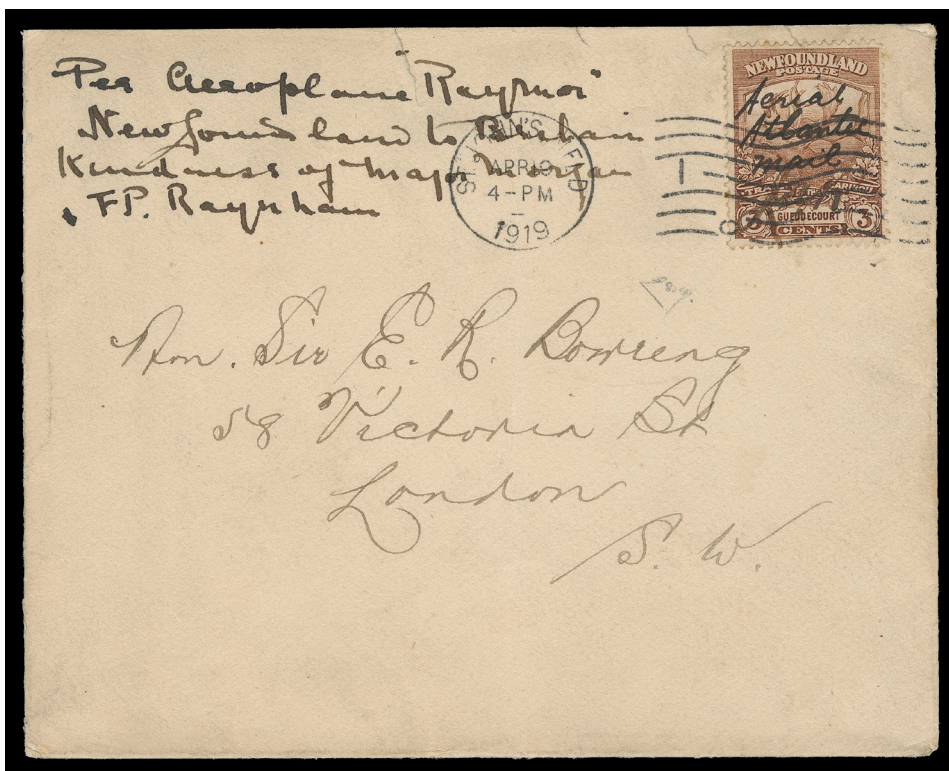 Per Aeroplane "Raymor"
Newfoundland to Britain
Kindness of Major Morgan
& F.P. Raynham
ST. JOHN'S NFLD
APR 10
4-PM
1919
1
NEWFOUNDLAND
POSTAGE
Aerial
Atlantic
mail
TRAIL OF THE CARIBOU
GUEUDECOURT
3 CENTS 3
Hon. Sir E. R. Bowring
58 Victoria St
London
S. W.